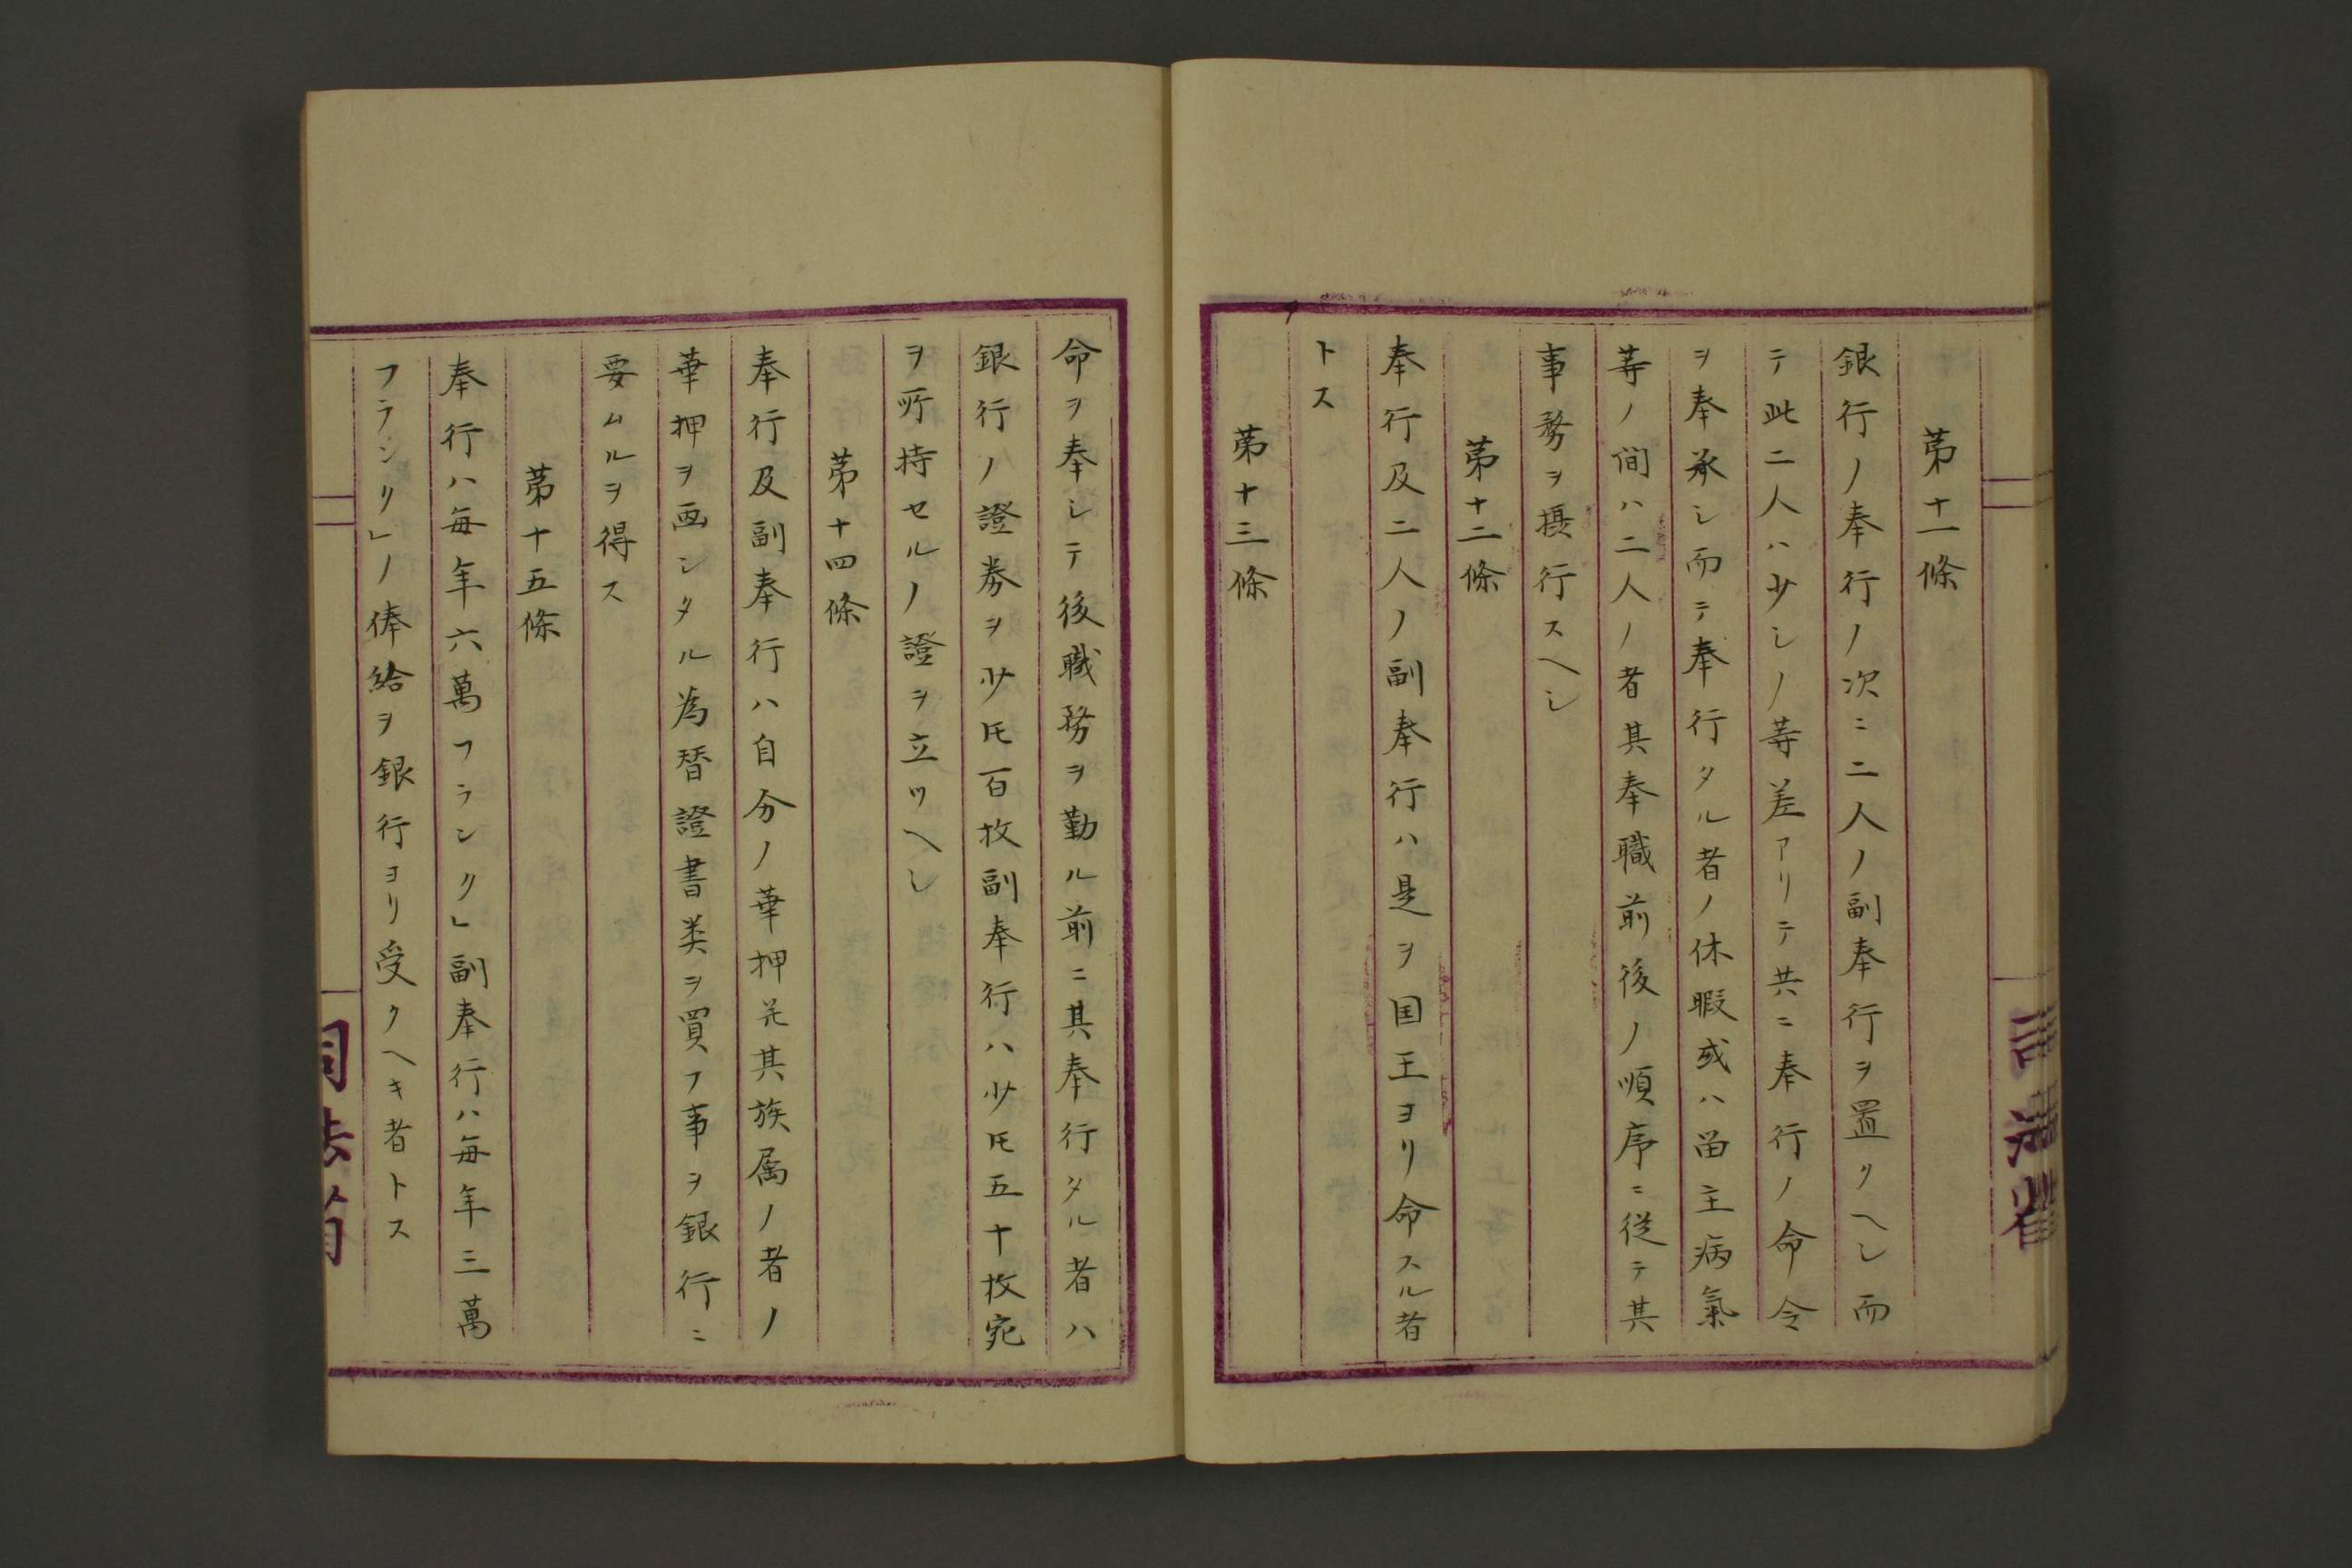 第十一條
銀行ノ奉行ノ次ニ二人ノ副奉行ヲ置クヘシ而
テ此二人ハ少シノ等差アリテ共ニ奉行ノ命令
ヲ奉承シ而テ奉行タル者ノ休暇或ハ留主病氣
等ノ間ハ二人ノ者其奉職前後ノ順序ニ従テ其
事務ヲ摂行スヘシ
第十二條
奉行及二人ノ副奉行ハ是ヲ国王ヨリ命スル者
トス
第十三條
命ヲ奉シテ後職務ヲ勤ル前ニ其奉行タル者ハ
銀行ノ證券ヲ少𪜈百枚副奉行ハ少𪜈五十枚宛
ヲ所持セルノ證ヲ立ツヘシ
第十四條
奉行及副奉行ハ自分ノ華押并其族属ノ者ノ
華押ヲ画シタル為替證書类ヲ買フ事ヲ銀行ニ
要ムルヲ得ス
第十五條
奉行ハ毎年六萬フランク」副奉行ハ毎年三萬
フランク」ノ俸給ヲ銀行ヨリ受クヘキ者トス